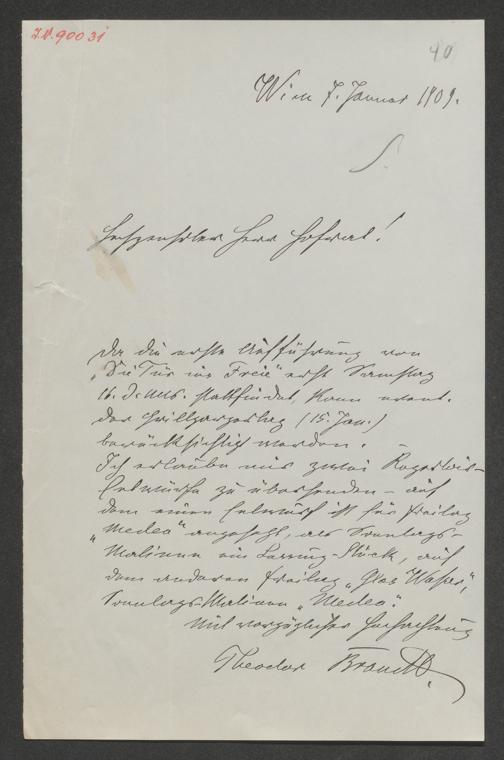 I.N. 90031
40
Wien 7. Januar 1909.
Hochgeehrter Herr Hofrat!
Da die erste Aufführung von
„Die Tür ins Freie" erst Samstag
16. d. Mts. stattfindet, kann event.
der Grillparzertag (15. Jan.)
berücksichtigt werden. –
Ich erlaube mir zwei Repertoir-
Entwürfe zu übersenden – auf
dem einen Entwurf ist für Freitag
„Medea" angesetzt, als Sonntags-
Matinee ein Lessing-Stück, auf
dem anderen Freitag „Glas Wasser",
Sonntags Matinee „Medea".
Mit vorzüglicher Hochachtung
Theodor Brandt.